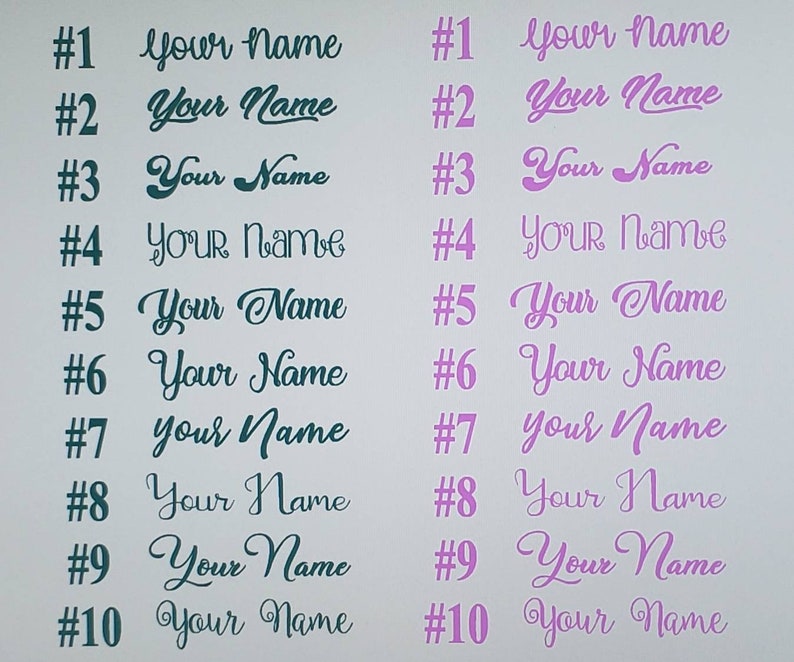 #1 Your Name #1 Your Name
#2 Your Name #2 Your Name
#3 Your Name #3 Your Name
#4 Your Name #4 Your Name
#5 Your Name #5 Your Name
#6 Your Name #6 Your Name
#7 your Name #7 your Name
#8 Your Name #8 Your Name
#9 Your Name #9 Your Name
#10 Your Name #10 Your Name